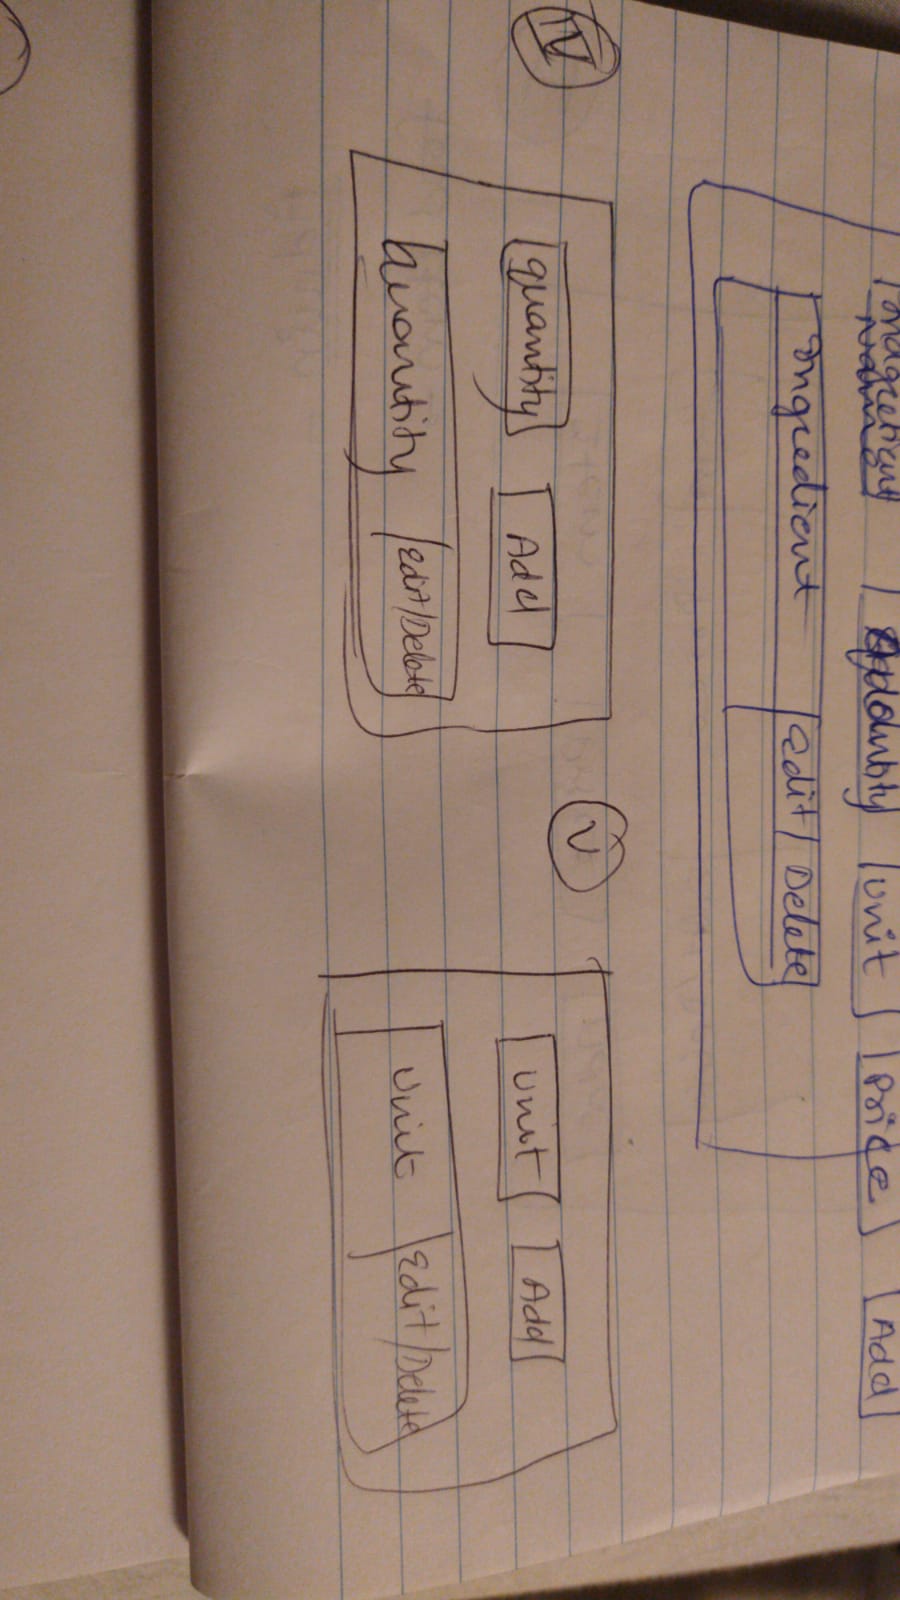 Ingredient Name Quantity Unit Price Add
Ingredient Edit/Delete
IV
V
quantity Add
Unit Add
Quantity Edit/Delete
Unit Edit/Delete